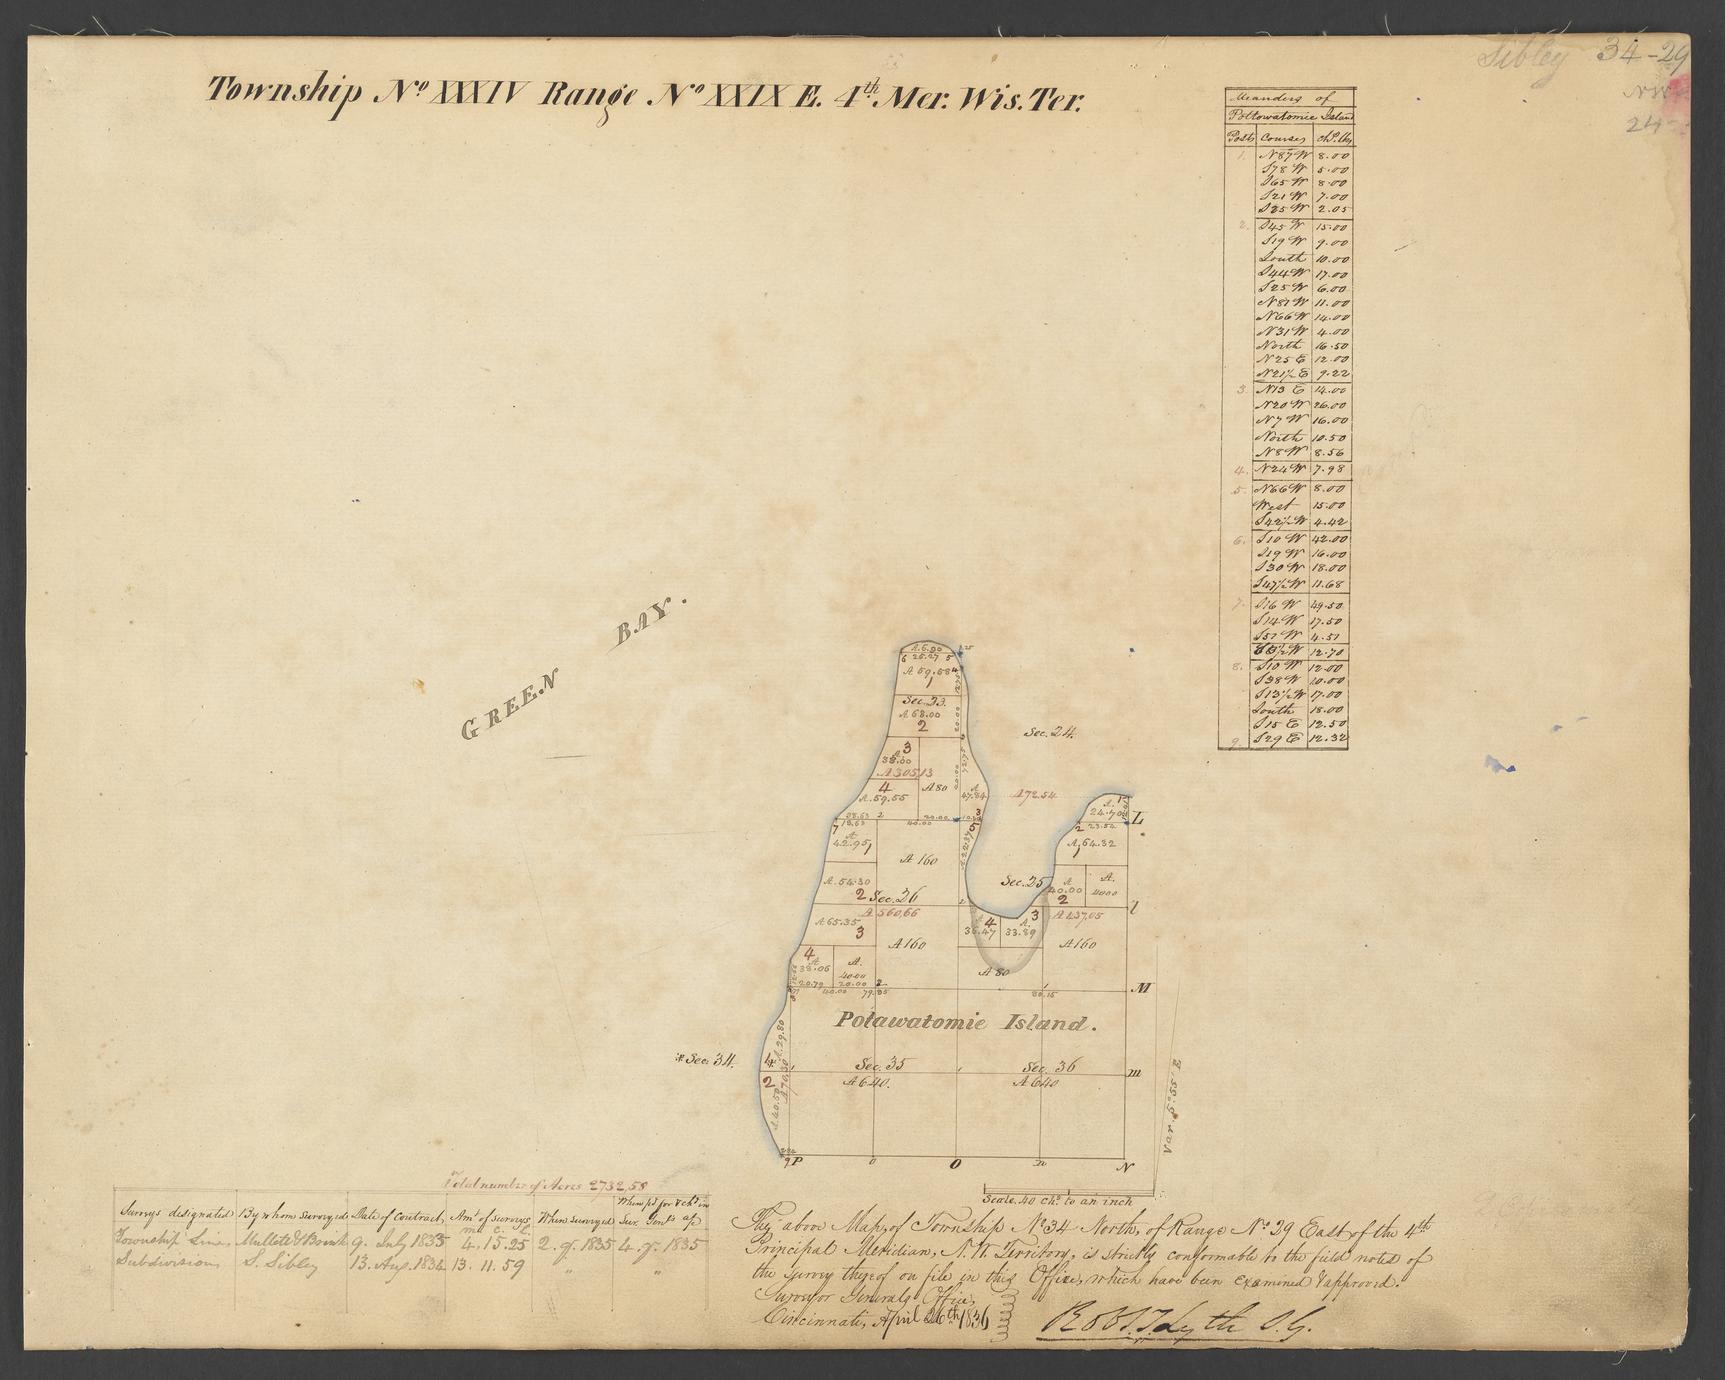 Sibley 34-29
NW
24
Township No XXXIV Range No XXIX E. 4th Mer. Wis. Ter.
Meanders of
Pottowatomie Island
Posts Courses Chs. lks
1. N87W 8.00
S78W 5.00
S65W 8.00
S21W 7.00
S35W 2.05
2. S45W 15.00
S19W 9.00
South 10.00
S44W 17.00
S25W 6.00
N81W 11.00
N66W 14.00
N31W 4.00
North 16.50
N25E 12.00
N21½E 9.22
3. N13E 14.00
N20W 26.00
N7W 16.00
North 10.50
N8W 8.56
4. N24W 7.98
5. N66W 8.00
West 15.00
S42½W 4.42
6. S10W 42.00
S19W 16.00
S30W 18.00
S47½W 11.68
7. S16W 49.50
S14W 17.50
S51W 4.51
12.70
8. S10W 12.00
S38W 20.00
S13½W 17.00
South 18.00
S15E 12.50
9. S29E 12.32
GREEN BAY.
A.6.00
6 25.27 5
A 59.58 4
1
Sec. 23.
A 68.00
2
3
38.00
A 305.13
4 A 80
A.59.55
Sec. 24.
A 72.54
47.84
38.63 2 20.00 3
7 18.63 40.00 5
A
42.95 1
A 160
A. 54.30
2 Sec. 26
A 560.66
A 65.35
3
A 160
4
A
38.06
A.
40.00
20.79 20.00
40.00 79.85
1
A.
24.70
L
2 23.52
A. 64.32
1
Sec. 25
A
40.00
A.
40.00
2
l
4 3 A 437.05
36.47 33.89
A 160
A 80
80.15
M
Potawatomie Island.
Sec. 34.
4
A.29.80
A 70.30
2
A.40.50
Sec. 35 Sec. 36
A 640. A 640
m
9 P O n N
Var. 5°.55' E
Scale. 40 chs to an inch
Total number of Acres 2732,58
Surveys designated By whom Surveyed Date of Contract Amt of surveys When surveyed
Township Lines Mullett & Brink 9. July 1833 4, 15. 25 2. qr. 1835 4. qr. 1835
Subdivisions S. Sibley 13. Aug. 1834 13. 11. 59 " "
The above Map, of Township No 34 North, of Range No 29 East of the 4th
Principal Meridian, N.W. Territory, is strictly conformable to the field notes of
the survey thereof on file in this Office, which have been examined & approved.
Surveyor Generals Office,
Cincinnati, April 26th 1836
Robt. T. Lytle S. G.